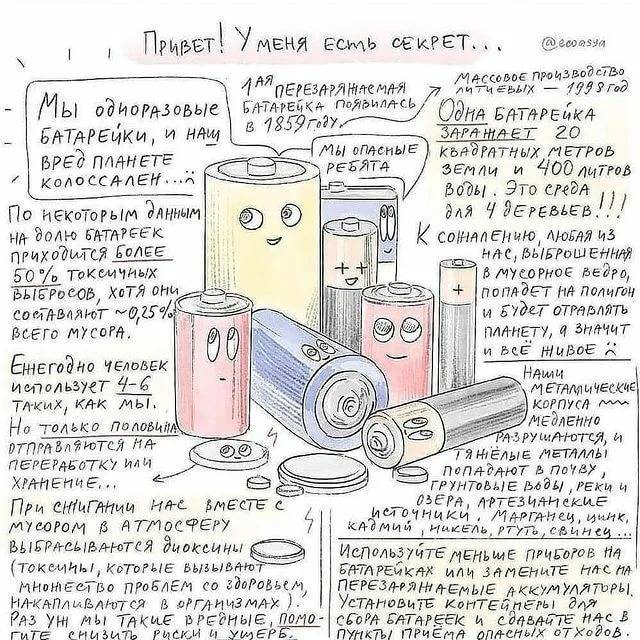 Привет! У меня есть секрет...
@ecoasya
Мы одноразовые
батарейки, и наш
вред планете
колоссален...
1ая перезаряжаемая
батарейка появилась
в 1859 году
Массовое производство
литиевых — 1998 год
Мы опасные
ребята
Одна батарейка
заражает 20
квадратных метров
земли и 400 литров
воды. Это среда
для 4 деревьев!!!
По некоторым данным
на долю батареек
приходится более
50% токсичных
выбросов, хотя они
составляют ~0,25%
всего мусора.
К сожалению, любая из
нас, выброшенная
в мусорное ведро,
попадет на полигон
и будет отравлять
планету, а значит
и всё живое
Ежегодно человек
использует 4-6
таких, как мы.
Но только половина
отправляются на
переработку или
хранение...
Наши
металлические
корпуса
медленно
разрушаются, и
тяжёлые металлы
попадают в почву,
грунтовые воды, реки и
озера, артезианские
источники. Марганец, цинк,
кадмий, никель, ртуть, свинец...
При сжигании нас вместе с
мусором в атмосферу
выбрасываются диоксины
(токсины, которые вызывают
множество проблем со здоровьем,
накапливаются в организмах).
Раз уж мы такие вредные, помо-
гите снизить риски и ущерб.
Используйте меньше приборов на
батарейках или замените нас на
перезаряжаемые аккумуляторы.
Установите контейнеры для
сбора батареек и сдавайте нас в
пункты приёма опасных отходов